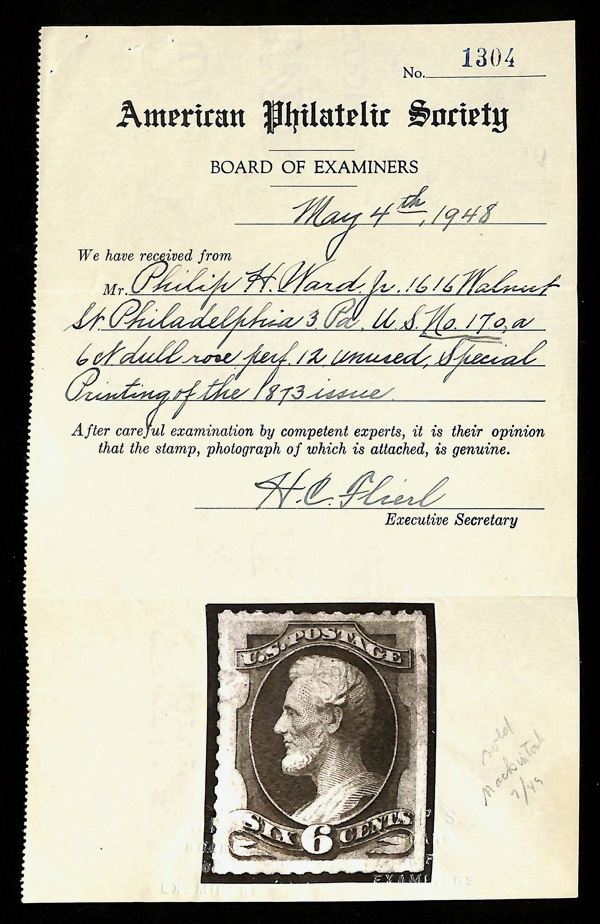 No. 1304
American Philatelic Society
BOARD OF EXAMINERS
May 4th, 1948
We have received from
Mr. Philip H. Ward, Jr. 1616 Walnut
St. Philadelphia 3 Pa. U.S. No. 170, a
6ct dull rose, perf. 12 unused, Special
Printing of the 1873 issue.
After careful examination by competent experts, it is their opinion
that the stamp, photograph of which is attached, is genuine.
H.C. Flierl
Executive Secretary
U.S. POSTAGE
SIX 6 CENTS
sold
Mackintosh
7/49
EXAMINERS
EXAMINERS